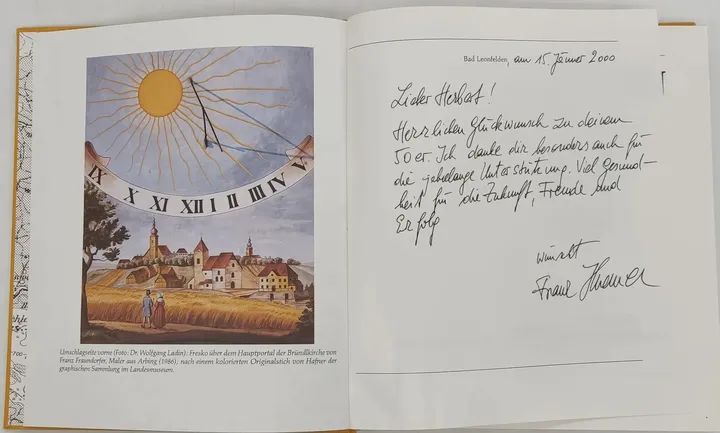 IX X XI XII I II IIII IV V
Umschlagseite vorne (Foto: Dr. Wolfgang Ladin): Fresko über dem Hauptportal der Bründlkirche von
Franz Fraundorfer, Maler aus Arbing (1986); nach einem kolorierten Originalstich von Hafner der
graphischen Sammlung im Landesmuseum.
Bad Leonfelden, am 15. Jänner 2000
Lieber Herbert!
Herzlichen Glückwunsch zu deinem
50er. Ich danke dir besonders auch für
die jahrelange Unterstützung. Viel Gesund-
heit für die Zukunft, Freude und
Erfolg
wünscht
Franz